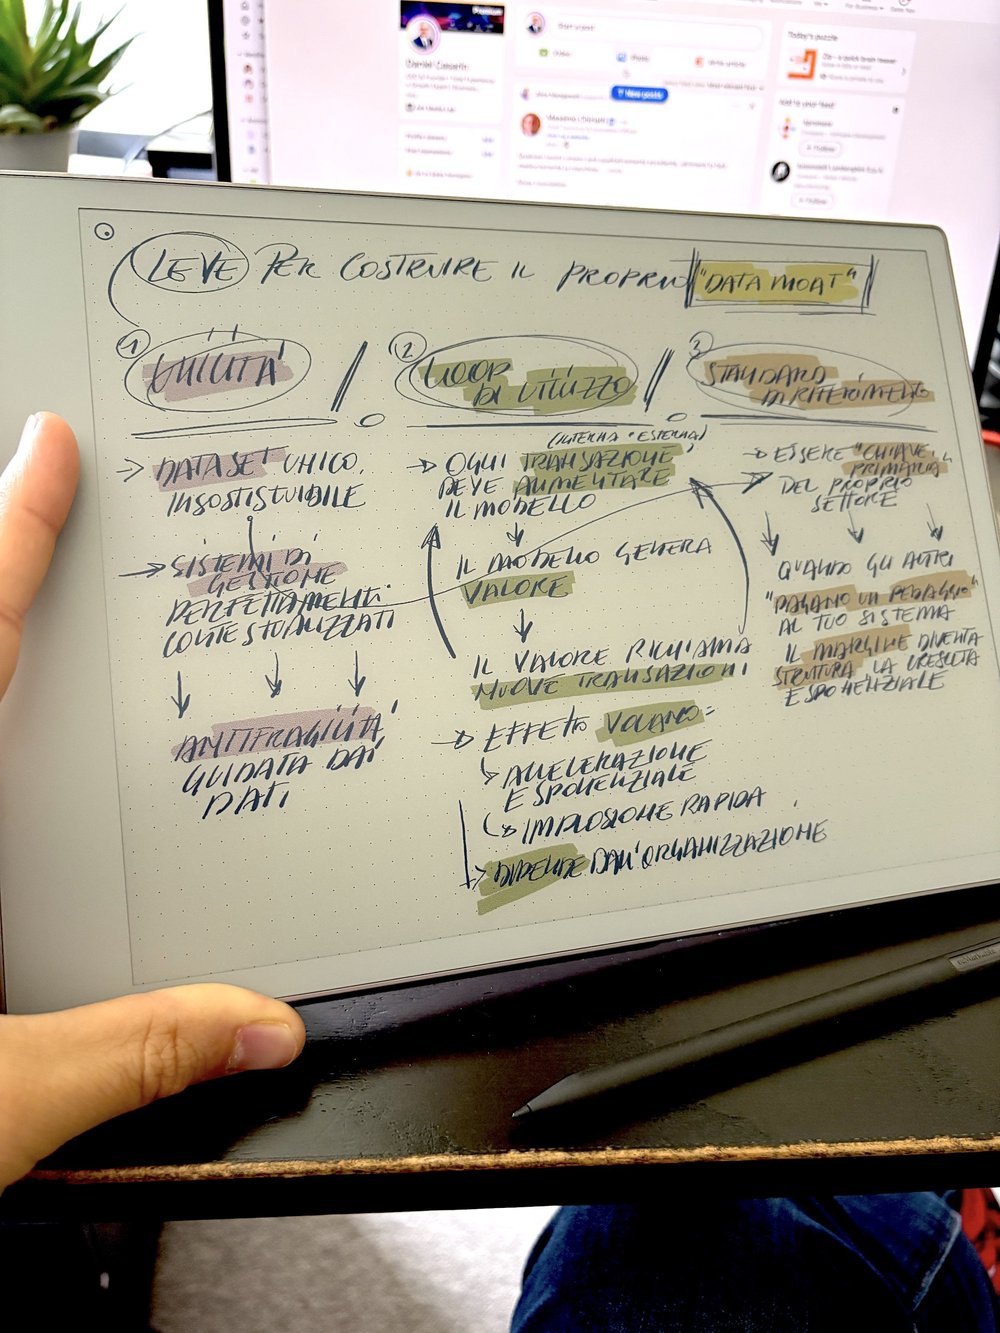 LEVE PER COSTRUIRE IL PROPRIO "DATA MOAT"
1
UNICITÀ
DATASET UNICO,
INSOSTITUIBILE
SISTEMI DI
GESTIONE
PERFETTAMENTE
CONTESTUALIZZATI
ANTIFRAGILITÀ
GUIDATA DAI
DATI
2
LOOP
DI UTILIZZO
(INTERNA • ESTERNA)
OGNI TRANSAZIONE
DEVE AUMENTARE
IL MODELLO
IL MODELLO GENERA
VALORE
IL VALORE RICHIAMA
NUOVE TRANSAZIONI
EFFETTO VOLANO:
ACCELERAZIONE
ESPONENZIALE
IMPLOSIONE RAPIDA
DIPENDE DALL'ORGANIZZAZIONE
3
STANDARD
DI RIFERIMENTO
ESSERE "CHIAVE
PRIMARIA"
DEL PROPRIO
SETTORE
QUANDO GLI ALTRI
"PAGANO UN PEDAGGIO"
AL TUO SISTEMA
IL MARGINE DIVENTA
STRUTTURA LA CRESCITA
ESPONENZIALE
Premium
New posts
Today's puzzle
Add to your feed
+ Follow
+ Follow